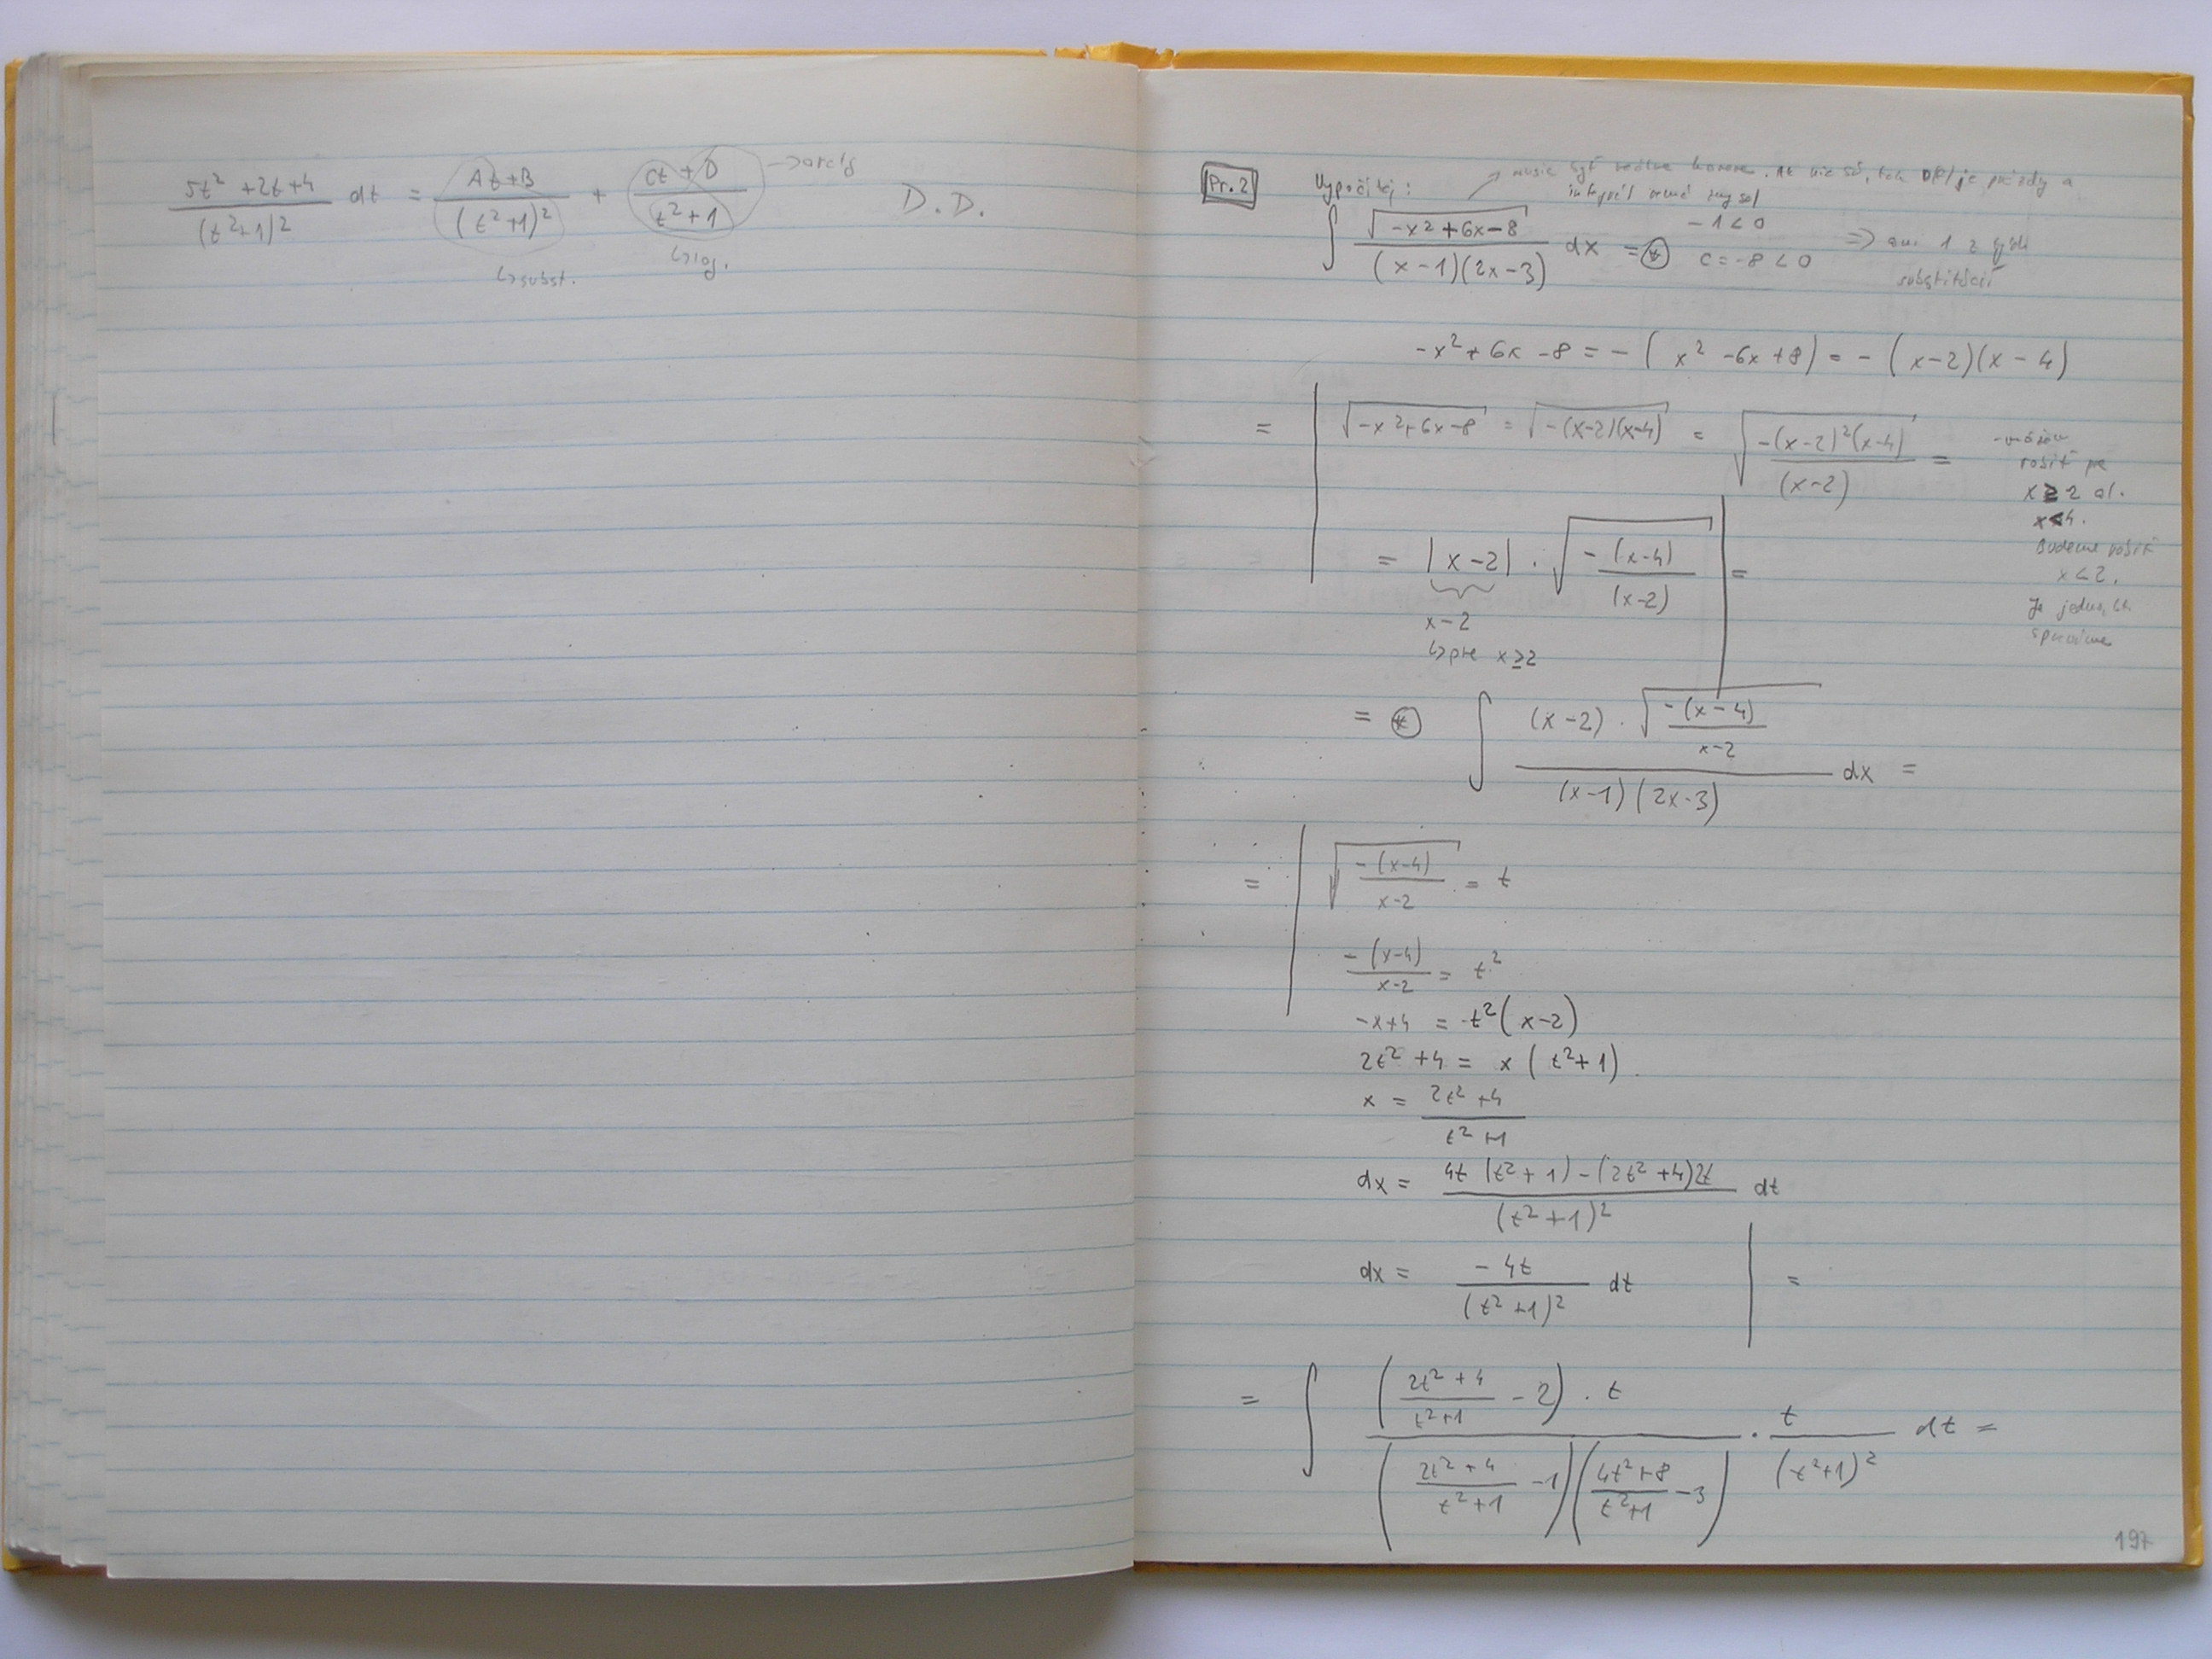 5t² + 2t + 4 / (t²+1)² dt = At+B / (t²+1)² + Ct+D / t²+1 → arctg D.D.
↳ subst. ↳ log.
Pr. 2 Vypočítaj: → musia byť reálne korene. Ak nie sú, tak D(f) je prázdny a
integrál nemá zmysel
∫ √(-x²+6x-8) / (x-1)(2x-3) dx = ⊛ -1<0
c = -8 < 0 ⇒ ani 1 z
substitúcií
-x² + 6x - 8 = - ( x² - 6x + 8 ) = - ( x-2)(x - 4)
= | √(-x²+6x-8) = √(-(x-2)(x-4)) = √(-(x-2)²(x-4) / (x-2)) =
= |x-2| . √(-(x-4) / (x-2)) | =
x-2
↳ pre x≥2
robiť pre
x ≥ 2 al.
x<4.
Budeme robiť
x<2.
Je jedno,
= ⊛ ∫ (x-2) . √(-(x-4) / x-2) / (x-1)(2x-3) dx =
= | √(-(x-4) / x-2) = t
-(x-4) / x-2 = t²
-x+4 = t²(x-2)
2t² + 4 = x (t²+1)
x = 2t² + 4 / t² + 1
dx = 4t (t²+1) - (2t²+4)2t / (t²+1)² dt
dx = -4t / (t²+1)² dt | =
= ∫ (2t²+4 / t²+1 - 2) . t / (2t²+4 / t²+1 - 1)(4t²+8 / t²+1 - 3) . t / (t²+1)² dt =
197